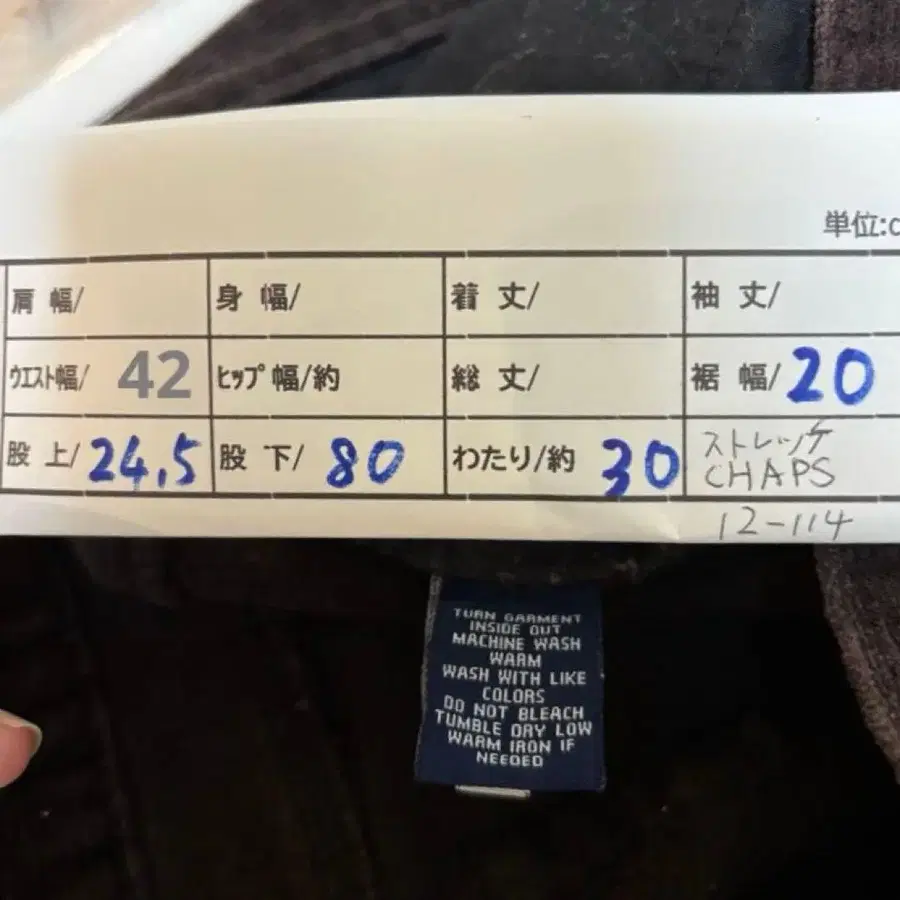 単位:c
肩 幅/ 身 幅/ 着 丈/ 袖 丈/
ウエスト幅/ 42 ヒップ 幅/約 総 丈/ 裾 幅/ 20
股 上/ 24.5 股 下/ 80 わたり/約 30 ストレッチ
CHAPS
12-114
TURN GARMENT
INSIDE OUT
MACHINE WASH
WARM
WASH WITH LIKE
COLORS
DO NOT BLEACH
TUMBLE DRY LOW
WARM IRON IF
NEEDED